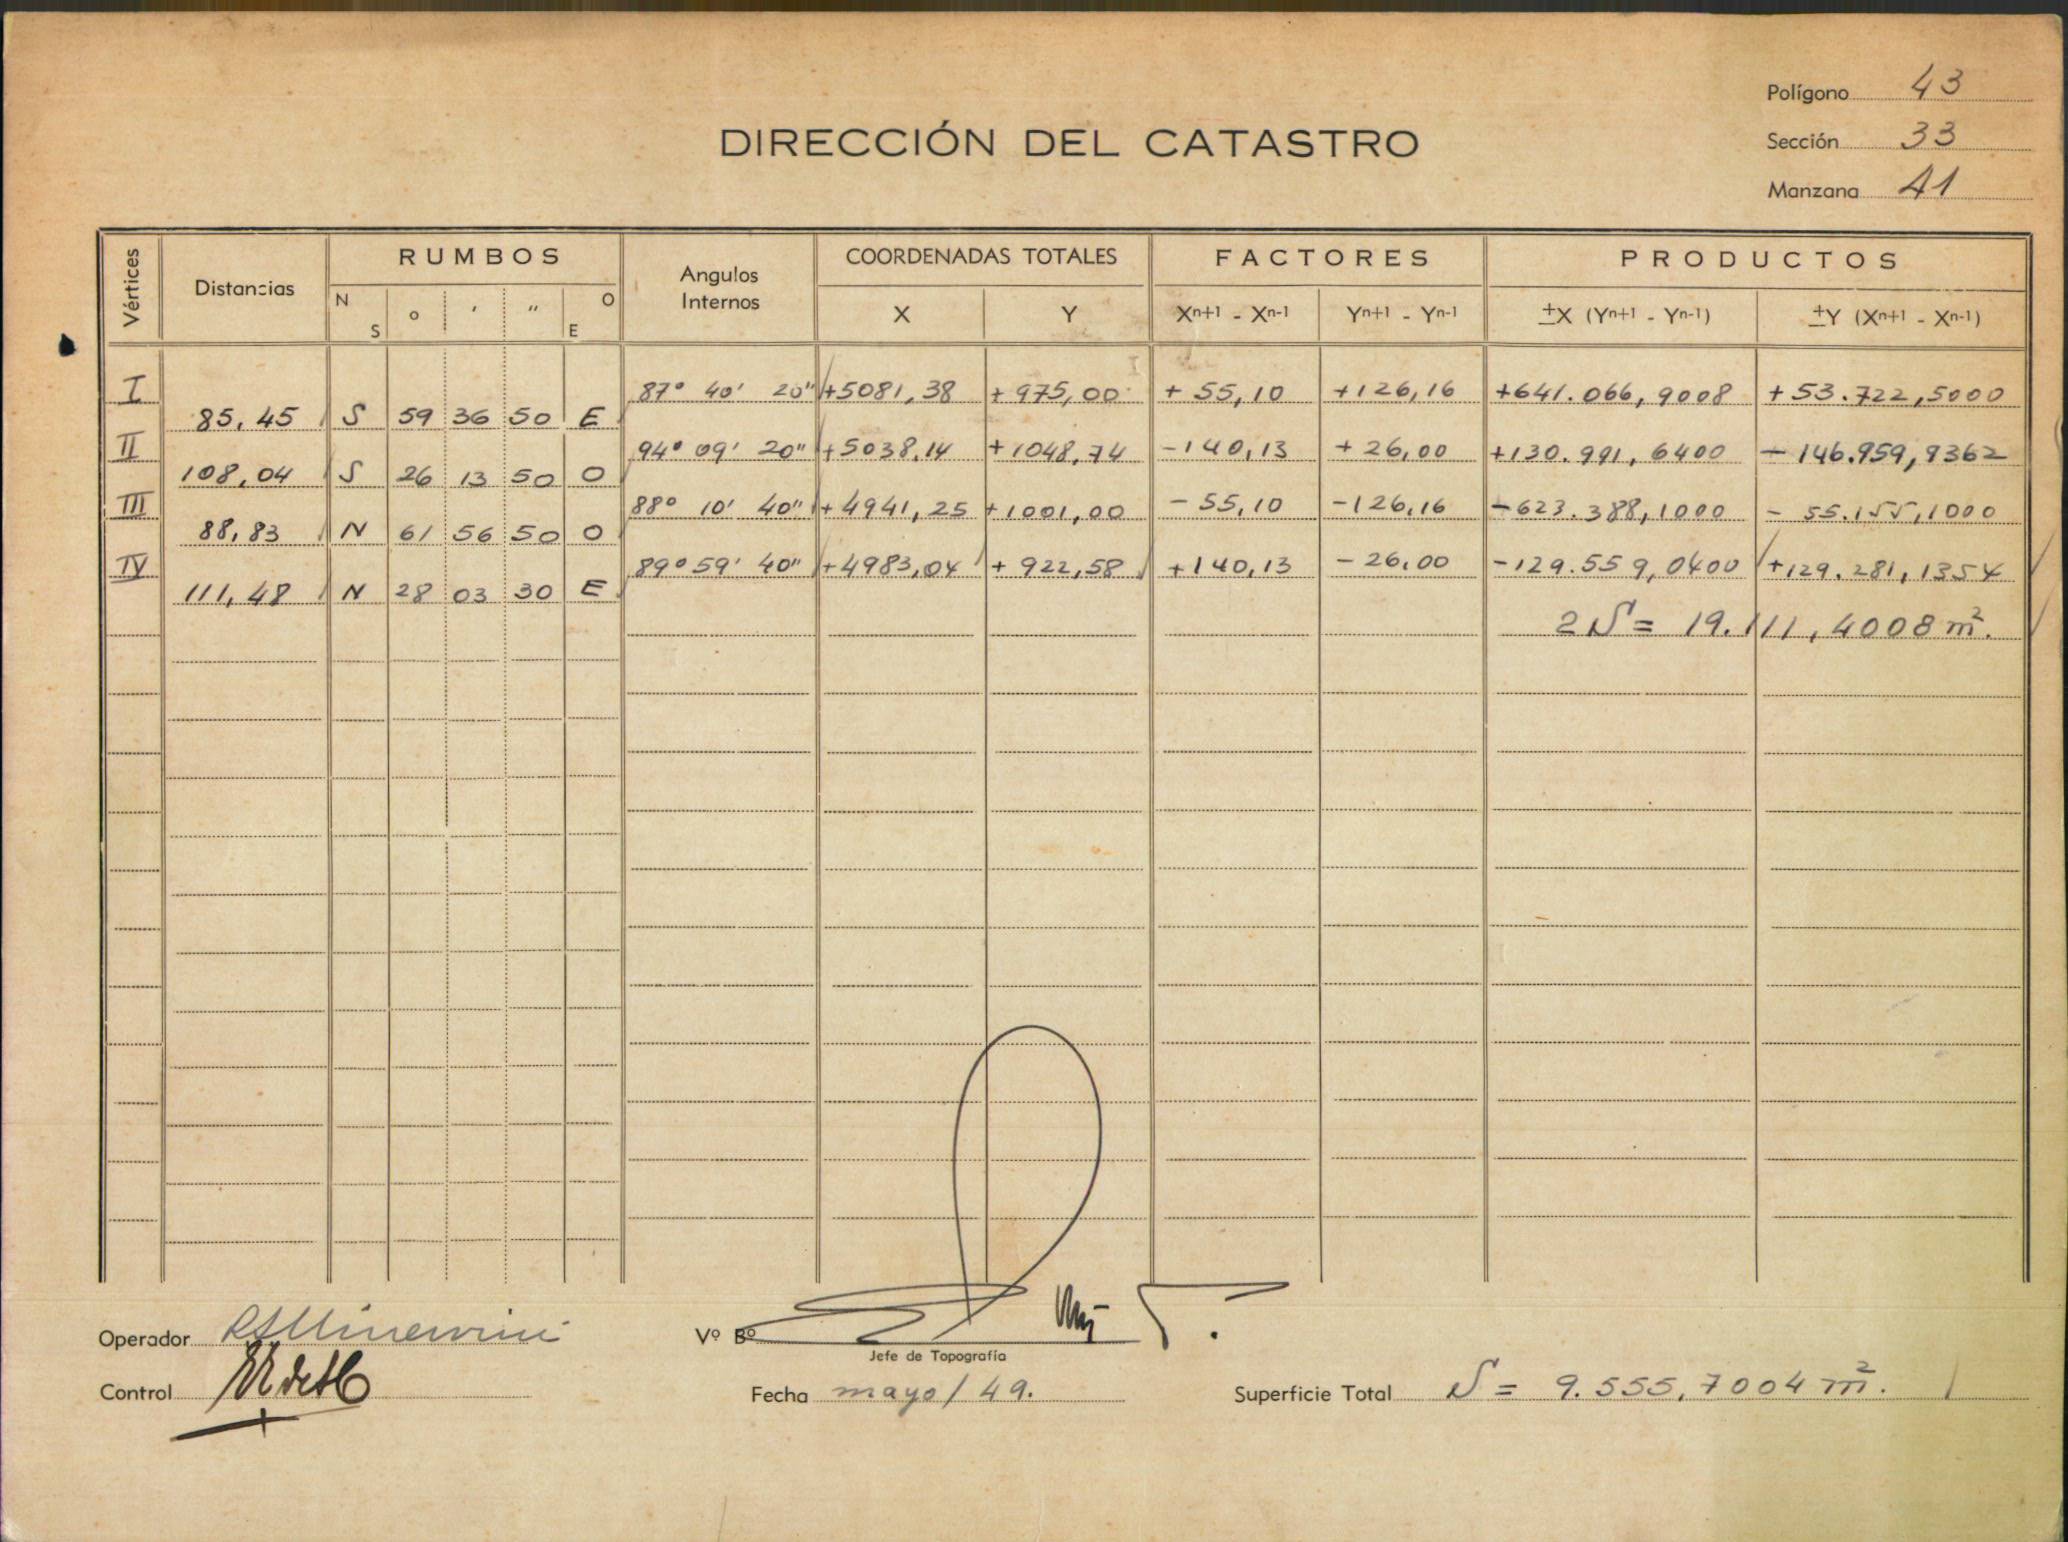 Polígono 43
DIRECCIÓN DEL CATASTRO
Sección 33
Manzana 41
Vértices Distancias RUMBOS Angulos Internos COORDENADAS TOTALES FACTORES PRODUCTOS
N S ° ' " O E X Y Xn+1 - Xn-1 Yn+1 - Yn-1 ±X (Yn+1 - Yn-1) ±Y (Xn+1 - Xn-1)
I 87° 40' 20" +5081,38 +975,00 +55,10 +126,16 +641.066,9008 +53.722,5000
85,45 S 59 36 50 E
II 94° 09' 20" +5038,14 +1048,74 -140,13 +26,00 +130.991,6400 -146.959,9362
108,04 S 26 13 50 O
III 88° 10' 40" +4941,25 +1001,00 -55,10 -126,16 -623.388,1000 -55.155,1000
88,83 N 61 56 50 O
IV 89° 59' 40" +4983,04 +922,58 +140,13 -26,00 -129.559,0400 +129.281,1354
111,48 N 28 03 30 E
2S = 19.111,4008 m².
Operador Vº Bº
Jefe de Topografía
Control Fecha mayo/49. Superficie Total S = 9.555,7004 m².